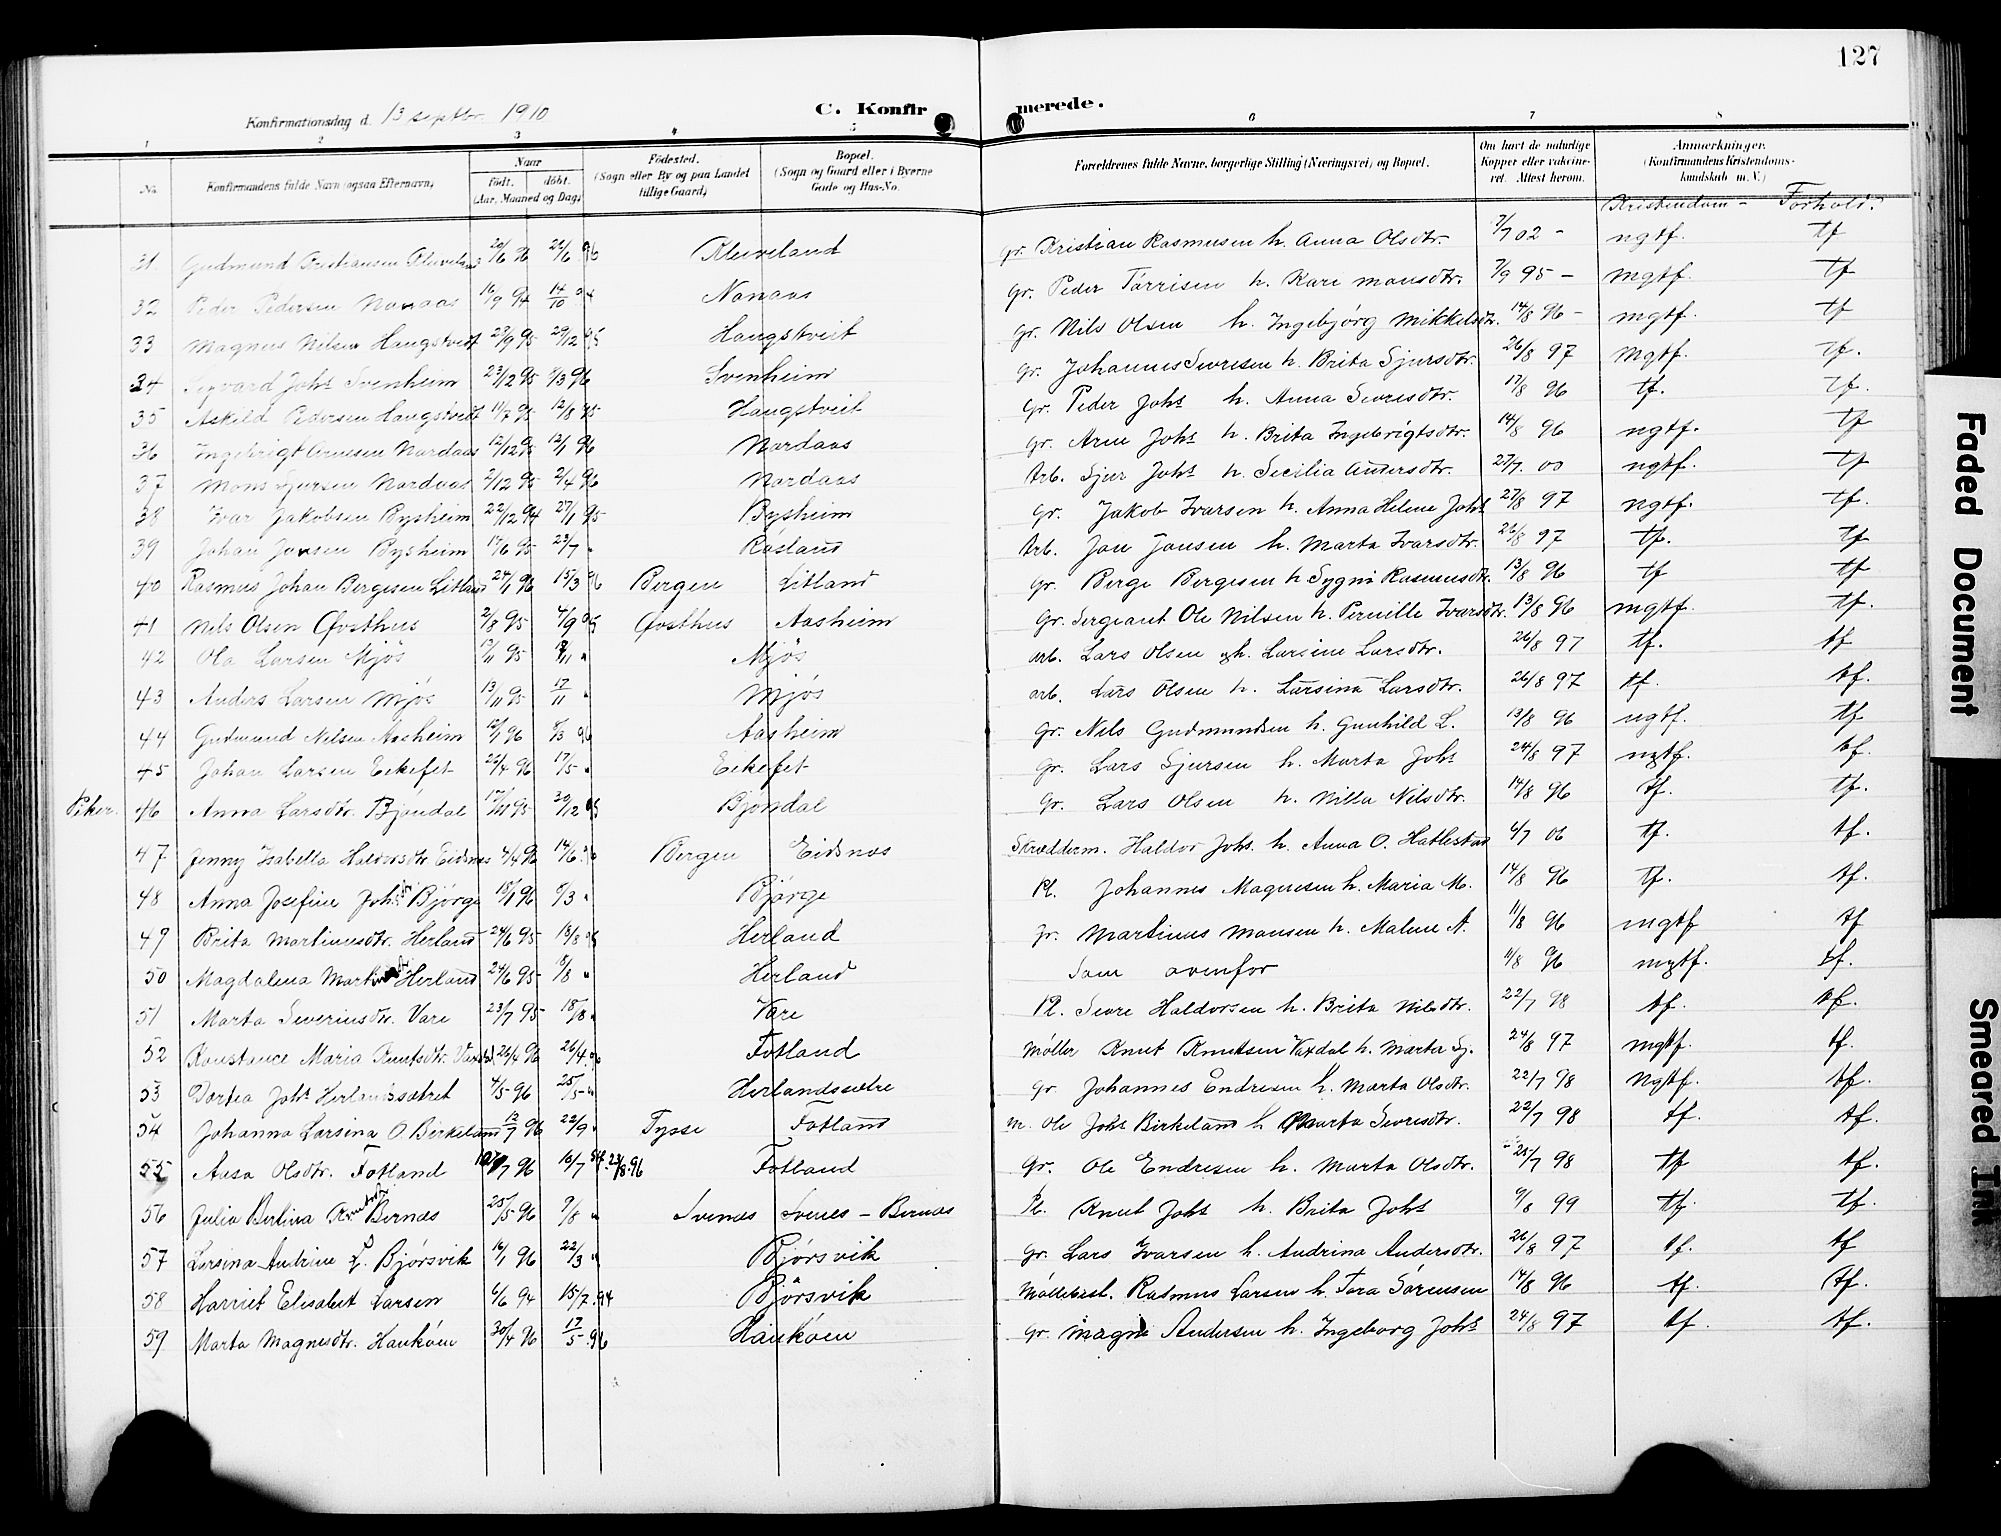 127
Konfirmationsdag d. 13 septbr. 1910
C. Konfir merede.
1 2 3 4 5 6 7 8
No. Konfirmandens fulde Navn (ogsaa Efternavn) Naar født. døbt. (Aar, Maaned og Dag) Fødested. (Sogn eller By og paa Landet tillige Gaard) Bopæl. (Sogn og Gaard eller i Byerne Gade og Hus-No. Forældrenes fulde Navne, borgerlige Stilling (Næringsvei) og Bopæl. Om havt de naturlige Kopper eller vakcineret. Attest herom. Anmærkninger. (Konfirmandens Kristendomskundskab m. V.)
Kristendom - Forhold.
31 Gudmund Kristiansen Kleiveland 20/6 96 Kleiveland gr. Kristian Rasmusen h. Anna Olsdtr. 7/7 02 - ngtf. tf
32 Peder Pedersen Nonaas 16/9 94 14/10 94 Nonaas Gr. Peder Torrisen h. Kari monsdtr. 7/9 95 - mgtf. tf
33 Magnus Nilsen Haugstveit 23/9 95 29/12 95 Haugstveit Gr. Nils Olsen h. Ingebjørg Mikkelsdtr. 14/8 96 - mgtf. tf
34 Sigvard Johs Svenheim 23/12 95 8/3 96 Svenheim Gr. Johannes Sevresen h. Brita Sjursdtr. 26/8 97 mgtf. tf.
35 Askild Pedersen Haugstveit 11/7 95 12/8 95 Haugstveit Gr. Peder Johs h. Anna Sevresdtr. 17/8 96 tf. tf.
36 Ingebrigt Arnesen Nordaas 12/12 95 12/1 96 Nordaas Gr. Arne Johs h. Brita Ingebrigtsdtr. 14/8 96 ngtf. tf
37 Mons Sjursen Nordaas 2/12 95 2/4 96 Nordaas Arb. Sjur Johs h. Secilia Andersdtr. 27/7. 00 ngtf. tf
38 Ivar Jakobsen Bysheim 22/12 94 27/1 95 Bysheim Gr. Jakob Ivarsen h. Anna Helene Johs 27/8 97 ngtf. tf.
39 Johan Jonsen Bysheim 17/6 95 23/7 " Røsland Arb. Jon Jonsen h. Marta Ivarsdtr. 26/8 97 tf. tf
40 Rasmus Johan Bergesen Litland 24/1 96 15/3 96 Bergen Litland Gr. Berge Bergesen h. Sygni Rasmusdtr. 13/8 96 tf tf
41 Nils Olsen Øvsthus 2/8 95 4/9 95 Øvsthus Aasheim Gr. Sergeant Ole Nilsen h. Pernille Ivarsdtr. 13/8 96 mgtf. tf.
42 Ola Larsen Mjøs 13/11 95 Mjøs arb. Lars Olsen h. Larsine Larsdtr. 26/8 97 tf. tf
43 Anders Larsen Mjøs 13/11 95 17/11 " Mjøs arb. Lars Olsen h. Larsina Larsdtr. 26/8 97 tf. tf.
44 Gudmund Nilsen Aasheim 12/1 96 8/3 96 Aasheim Gr. Nils Gudmundsen h. Gunhild L. 13/8 96 ngtf. tf
45 Johan Larsen Eekefet 22/4 96 17/5 " Eekefet Gr. Lars Sjursen h. Marta Johs 24/8 97 mgtf. tf.
Piker. 46 Anna Larsdtr. Bjøndal 17/11 95 30/12 95 Bjøndal Gr. Lars Olsen h. Nilla Nilsdtr. 14/8 96 tf. tf.
47 Jenny Isabella Haldorsdtr Eidsnes 4/4 96 14/6 96 Bergen Eidsnes Skrædderm. Haldor Johs. h. Anna O. Hatlestad 6/7 06 tf. tf.
48 Anna Josefine Johsdtr Bjørge 15/1 96 8/3 " Bjørge Pl. Johannes Magnesen h. Maria M. 14/8 96 tf. tf.
49 Brita Martinusdtr. Herland 24/6 95 13/8 95 Herland gr. Martinus Monsen h. Malene A. 11/8 96 mgtf tf
50 Magdalena Martinusdtr Herland 24/6 95 8/8 " Herland Som ovenfor 11/8 96 mgtf. tf.
51 Marta Severinsdtr. Vare 23/7 95 18/8 " Vare Pl. Sevre Haldorsen h. Brita Nilsdtr. 22/7 98 tf. tf.
52 Konstence Maria Knutsdtr. Vaxdal 26/4 96 26/4 96 Fotland Møller Knut Knutsen Vaxdal h. Marta Sj. 24/8 97 mgtf. tf.
53 Dortea Johs Herlandssætret 4/5 96 25/5 " Herlandssætre Gr. Johannes Endresen h. Marta Olsdtr. 22/7 98 Ngtf. tf.
54 Johanna Larsina O. Birkeland 12/7 96 22/9 " Tysse Fotland m. Ole Johs Birkeland h Marta Sevresdtr. 22/7 98 tf. tf.
55 Aasa Olsdtr. Fotland 10/7 96 10/7 st. 23/8 96 Fotland Gr. Ole Endresen h. Marta Olsdtr. 25/7 98 tf tf.
56 Julia Bertina Knutsdtr Bernes 25/5 96 9/8 " Svenes Svenes - Bernes Pl. Knut Johs h. Brita Johs 9/8 99 tf. tf.
57 Larsina Andrine L. Bjørsvik 16/1 96 22/3 " Bjørsvik Gr. Lars Ivarsen h. Andrina Andersdtr. 26/8 97 tf. tf
58 Harriet Elisabet Larsen 6/6 94 15/7 94 Bjørsvik Møllebest. Rasmus Larsen h. Tora Sørensen 14/8 96 tf. tf.
59 Marta Magnesdtr. Haukøen 30/4 96 17/5 96 Haukøen Gr. Magne Andersen h. Ingeborg Johs 24/8 97 tf. tf.
Faded Document
Smeared Ink